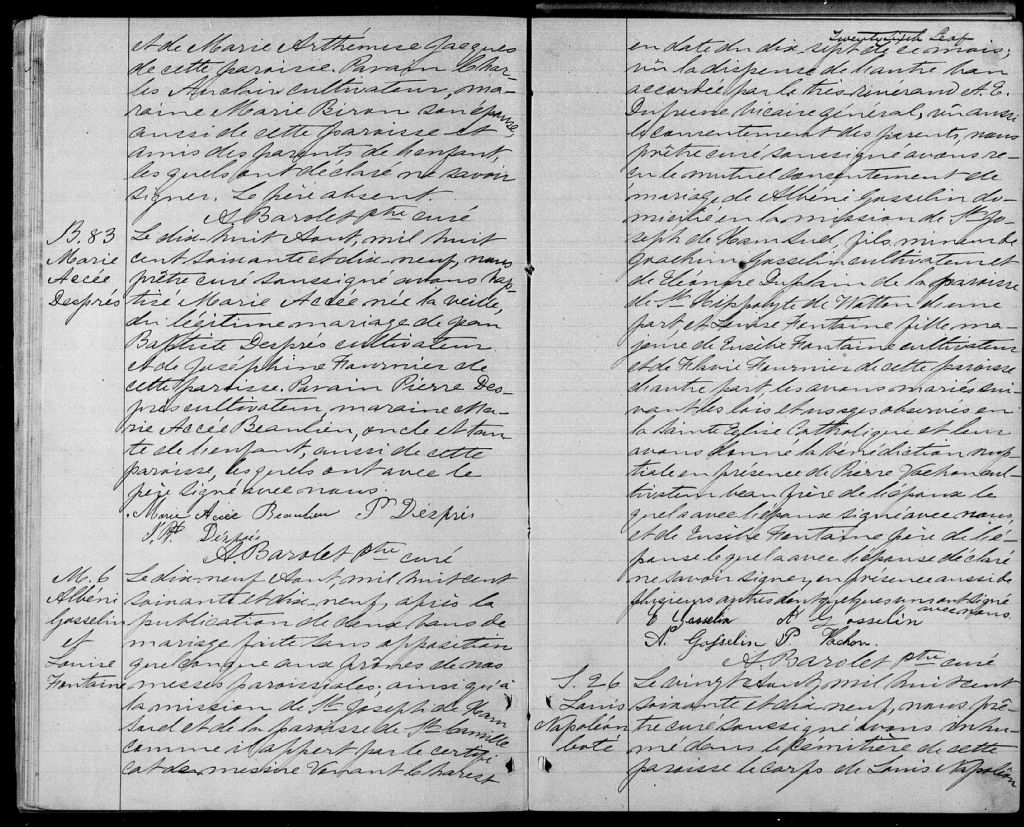 et de Marie Arthémise Jacques
de cette paroisse. Parain Char-
les Auclair cultivateur, ma-
raine Marie Biron son épouse,
aussi de cette paroisse et
amis des parents de l'enfant,
lesquels ont déclaré ne savoir
signer. Le père absent.
A. Barolet ptre curé
B. 83
Marie
Accée
Després
Le dix-huit Aout, mil huit
cent soixante et dix-neuf, nous
prêtre curé soussigné avons bap-
tisé Marie Accée née la veille,
du légitime mariage de Jean
Baptiste Després cultivateur
et de Joséphine Fournier de
cette paroisse. Parain Pierre Des-
prés cultivateur, maraine Ma-
rie Accée Beaulieu, oncle et tan-
te de l'enfant, aussi de cette
paroisse, lesquels ont avec le
père signé avec nous.
Marie Accée Beaulieu P Desprès
J. Bte Després
A. Barolet ptre curé
M. 6
Albéni
Gosselin
et
Louise
Fontaine
Le dix-neuf Aout mil huit cent
soixante et dix-neuf, après la
publication de deux bans de
mariage faite sans opposition
quelconque aux prônes de nos
messes paroissiales; ainsi qu'à
la mission de St Joseph de Ham
sud et de la paroisse de St Camille
comme il appert par le certifi
cat de messire Vanant Charest
Leaf
en date du dix-sept de ce mois;
vû la dispense de l'autre ban
accordée par le très révérand A. E.
Dufresne vicaire général, vû aussi
le consentement des parents, nous
prêtre curé soussigné avons re-
çu le mutuel consentement de
mariage de Albéni Gosselin do-
micilié en la mission de St Jo-
seph de Ham Sud, fils mineur de
Joachim Gosselin cultivateur et
de Eléonore Duplain de la paroisse
de St Hippolyte de Wotton d'une
part et Louise Fontaine fille ma-
jeure de Eusèbe Fontaine cultivateur
et de Flavie Fournier de cette paroisse
d'autre part, les avons mariés sui-
vant les lois et usages observés en
la Sainte Eglise Catholique et leur
avons donné la bénédiction nup-
tiale en présence de Pierre Vachon cul-
tivateur beau frère de l'époux le
quel a avec l'époux signé avec nous,
et de Eusèbe Fontaine père de l'é-
pouse lequel a avec l'épouse déclaré
ne savoir signer, en présence aussi de
plusieurs autres dont quelques uns ont signé
avec nous.
E Gosselin A Gosselin
A. Gosselin P Vachon
A. Barolet ptre curé
S. 26
Louis
Napoléon
Le vingt Aout, mil huit cent
soixante et dix-neuf, nous prê-
tre curé soussigné avons inhu-
mé dans le cimitière de cette
paroisse le corps de Louis Napoléon